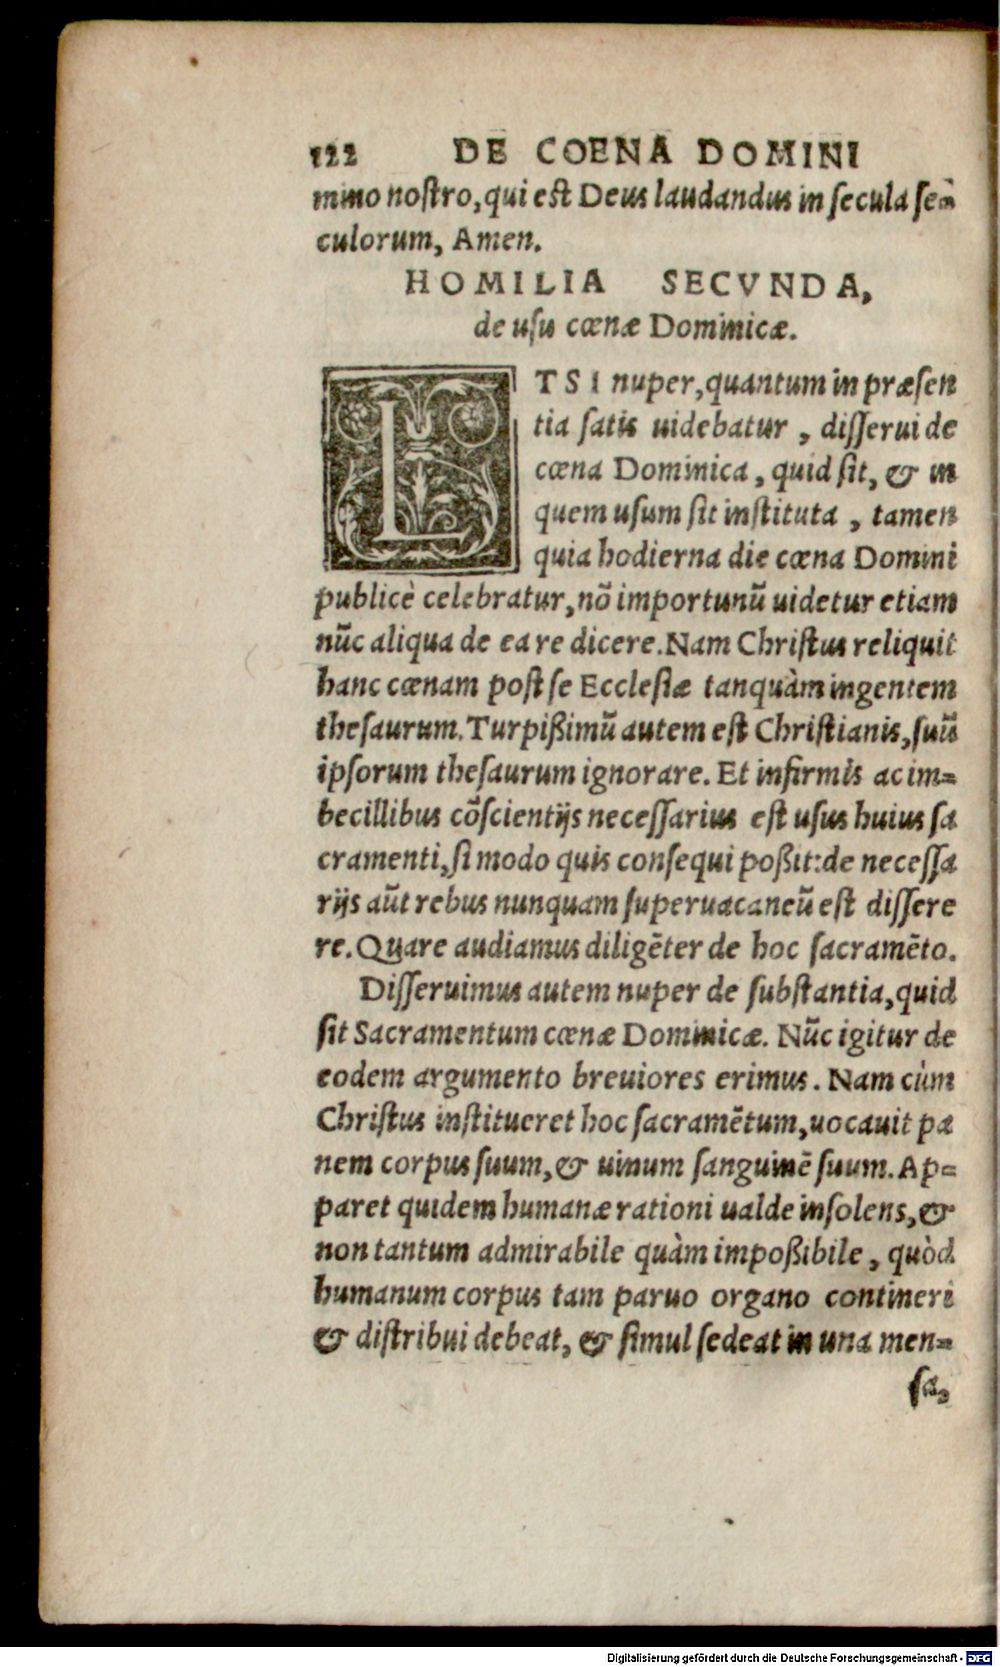 122 DE COENA DOMINI
mino nostro, qui est Deus laudandus in secula se-
culorum, Amen.
HOMILIA SECVNDA,
de usu cœnæ Dominicæ.
ETSI nuper, quantum in præsen
tia satis uidebatur, disserui de
cœna Dominica, quid sit, & in
quem usum sit instituta, tamen
quia hodierna die cœna Domini
publicè celebratur, nõ importunũ uidetur etiam
nũc aliqua de ea re dicere. Nam Christus reliquit
hanc cœnam post se Ecclesiæ tanquàm ingentem
thesaurum. Turpißimũ autem est Christianis, suũ
ipsorum thesaurum ignorare. Et infirmis ac im-
becillibus cõscientijs necessarius est usus huius sa
cramenti, si modo quis consequi poßit: de necessa
rijs aũt rebus nunquam superuacaneũ est dissere
re. Quare audiamus diligẽter de hoc sacramẽto.
Disseruimus autem nuper de substantia, quid
sit Sacramentum cœnæ Dominicæ. Nũc igitur de
eodem argumento breuiores erimus. Nam cùm
Christus institueret hoc sacramẽtum, uocauit pa
nem corpus suum, & uinum sanguinẽ suum. Ap-
paret quidem humanæ rationi ualde insolens, &
non tantum admirabile quàm impoßibile, quòd
humanum corpus tam paruo organo contineri
& distribui debeat, & simul sedeat in una men-
sa,
Digitalisierung gefördert durch die Deutsche Forschungsgemeinschaft - DFG